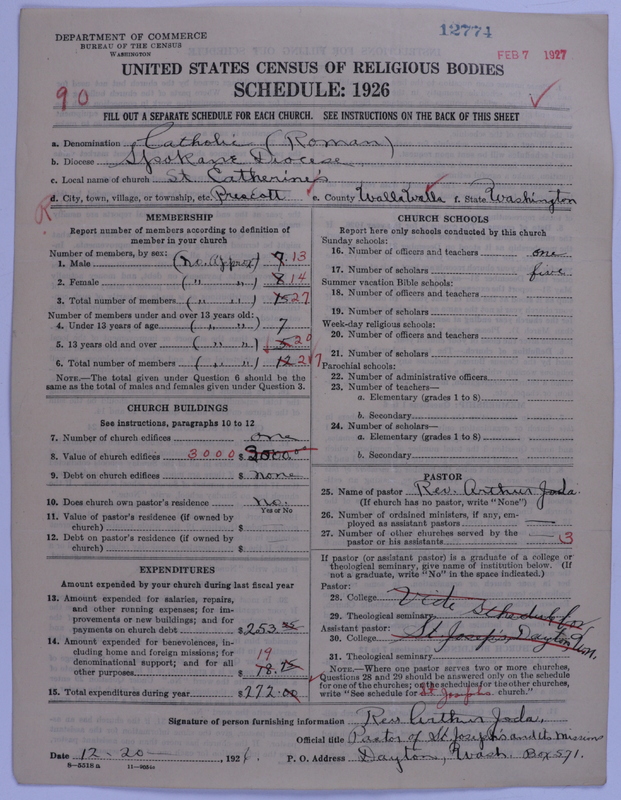 DEPARTMENT OF COMMERCE
BUREAU OF THE CENSUS
WASHINGTON
12774
FEB 7 1927
UNITED STATES CENSUS OF RELIGIOUS BODIES
SCHEDULE: 1926
90
FILL OUT A SEPARATE SCHEDULE FOR EACH CHURCH. SEE INSTRUCTIONS ON THE BACK OF THIS SHEET
a. Denomination Catholic (Roman)
b. Diocese Spokane Diocese
c. Local name of church St Catherine's
d. City, town, village, or township, etc. Prescott e. County Walla Walla f. State Washington
R
MEMBERSHIP
Report number of members according to definition of
member in your church
Number of members, by sex:
1. Male (No. Approx) 7 13
2. Female ( " " ) 8 14
3. Total number of members ( " " ) 15 27
Number of members under and over 13 years old:
4. Under 13 years of age ( " " ) 7
5. 13 years old and over ( " " ) 5 20
6. Total number of members ( " " ) 12 27
NOTE.—The total given under Question 6 should be the
same as the total of males and females given under Question 3.
CHURCH BUILDINGS
See instructions, paragraphs 10 to 12
7. Number of church edifices one
8. Value of church edifices 3000 $ 3000.00
9. Debt on church edifices $ none
10. Does church own pastor's residence No.
Yes or No
11. Value of pastor's residence (if owned by
church) $
12. Debt on pastor's residence (if owned by
church) $
EXPENDITURES
Amount expended by your church during last fiscal year
13. Amount expended for salaries, repairs,
and other running expenses; for im-
provements or new buildings; and for
payments on church debt $ 253
14. Amount expended for benevolences, in-
cluding home and foreign missions; for
denominational support; and for all
other purposes $ 18.75
19
15. Total expenditures during year $ 272.00
CHURCH SCHOOLS
Report here only schools conducted by this church
Sunday schools:
16. Number of officers and teachers one
17. Number of scholars five
Summer vacation Bible schools:
18. Number of officers and teachers
19. Number of scholars
Week-day religious schools:
20. Number of officers and teachers
21. Number of scholars
Parochial schools:
22. Number of administrative officers
23. Number of teachers—
a. Elementary (grades 1 to 8)
b. Secondary
24. Number of scholars—
a. Elementary (grades 1 to 8)
b. Secondary
PASTOR
25. Name of pastor Rev. Arthur Joda
(If church has no pastor, write "None")
26. Number of ordained ministers, if any, em-
ployed as assistant pastors
27. Number of other churches served by the
pastor or his assistants 3
If pastor (or assistant pastor) is a graduate of a college or
theological seminary, give name of institution below. (If
not a graduate, write "No" in the space indicated.)
Pastor:
28. College Vide Schedule for
29. Theological seminary
Assistant pastor:
30. College St. Joseph's, Dayton Wn.
31. Theological seminary
NOTE.—Where one pastor serves two or more churches,
Questions 28 and 29 should be answered only on the schedule
for one of the churches; on the schedules for the other churches,
write "See schedule for St. Josephs church."
Signature of person furnishing information Rev. Arthur Joda,
Official title Pastor of St. Joseph's and its missions
Date 12-20- , 1926. P. O. Address Dayton, Wash. Box 571.
8—5318 a 11—9554a